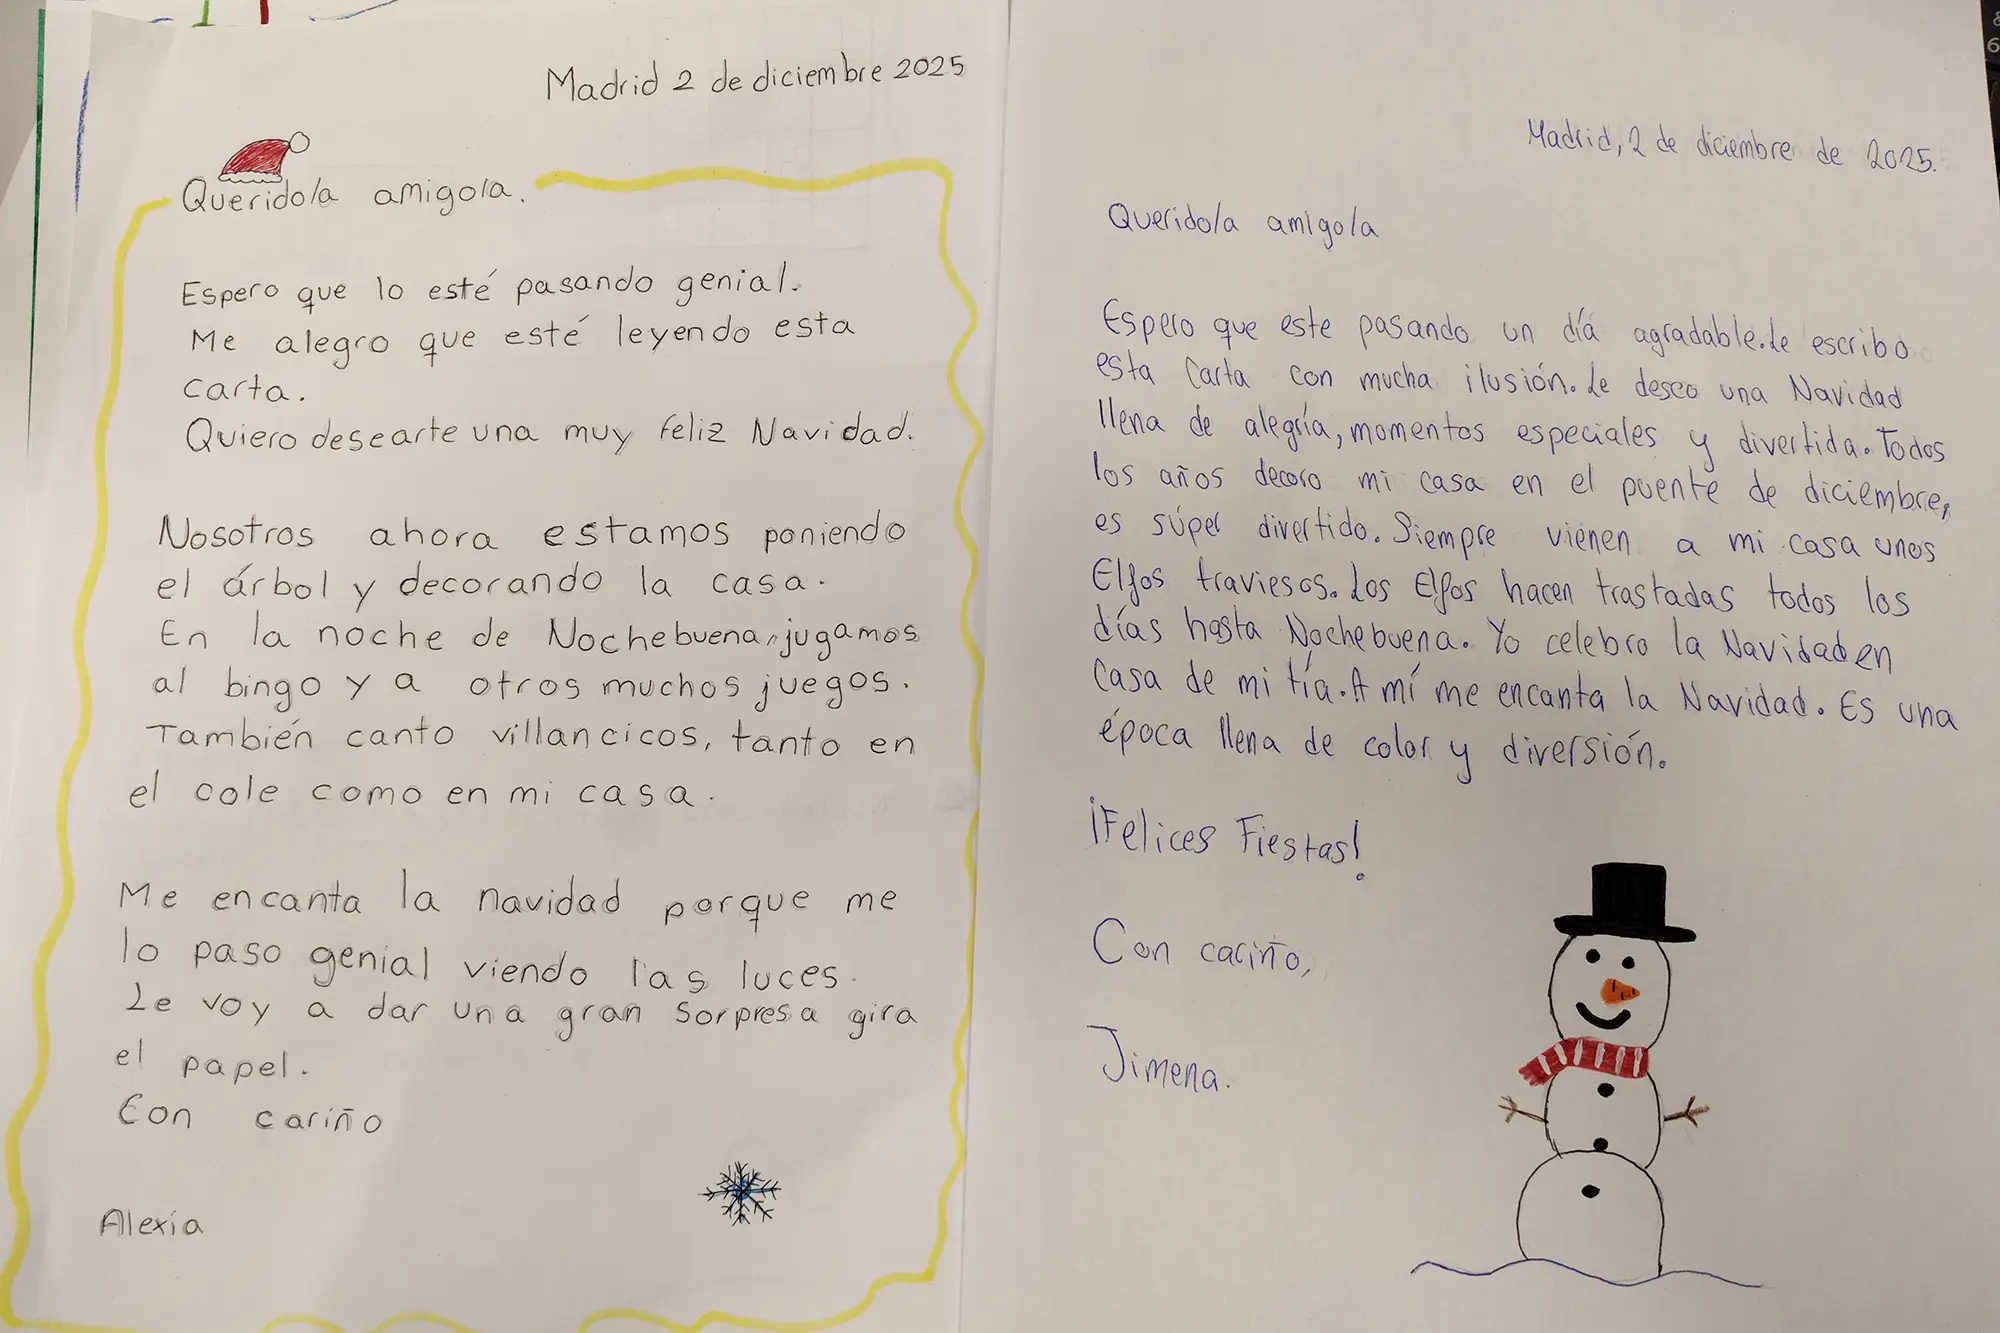 Madrid 2 de diciembre 2025
Querido/a amigo/a.
Espero que lo esté pasando genial.
Me alegro que esté leyendo esta
carta.
Quiero desearte una muy feliz Navidad.
Nosotros ahora estamos poniendo
el árbol y decorando la casa.
En la noche de Nochebuena, jugamos
al bingo y a otros muchos juegos.
También canto villancicos, tanto en
el cole como en mi casa.
Me encanta la navidad porque me
lo paso genial viendo las luces.
Le voy a dar una gran sorpresa gira
el papel.
Con cariño
Alexia
Madrid, 2 de diciembre de 2025.
Querido/a amigo/a
Espero que este pasando un día agradable. Le escribo
esta carta con mucha ilusión. Le deseo una Navidad
llena de alegría, momentos especiales y divertida. Todos
los años decoro mi casa en el puente de diciembre,
es súper divertido. Siempre vienen a mi casa unos
Elfos traviesos. Los Elfos hacen trastadas todos los
días hasta Nochebuena. Yo celebro la Navidad en
casa de mi tía. A mí me encanta la Navidad. Es una
época llena de color y diversión.
¡Felices Fiestas!
Con cariño,
Jimena.